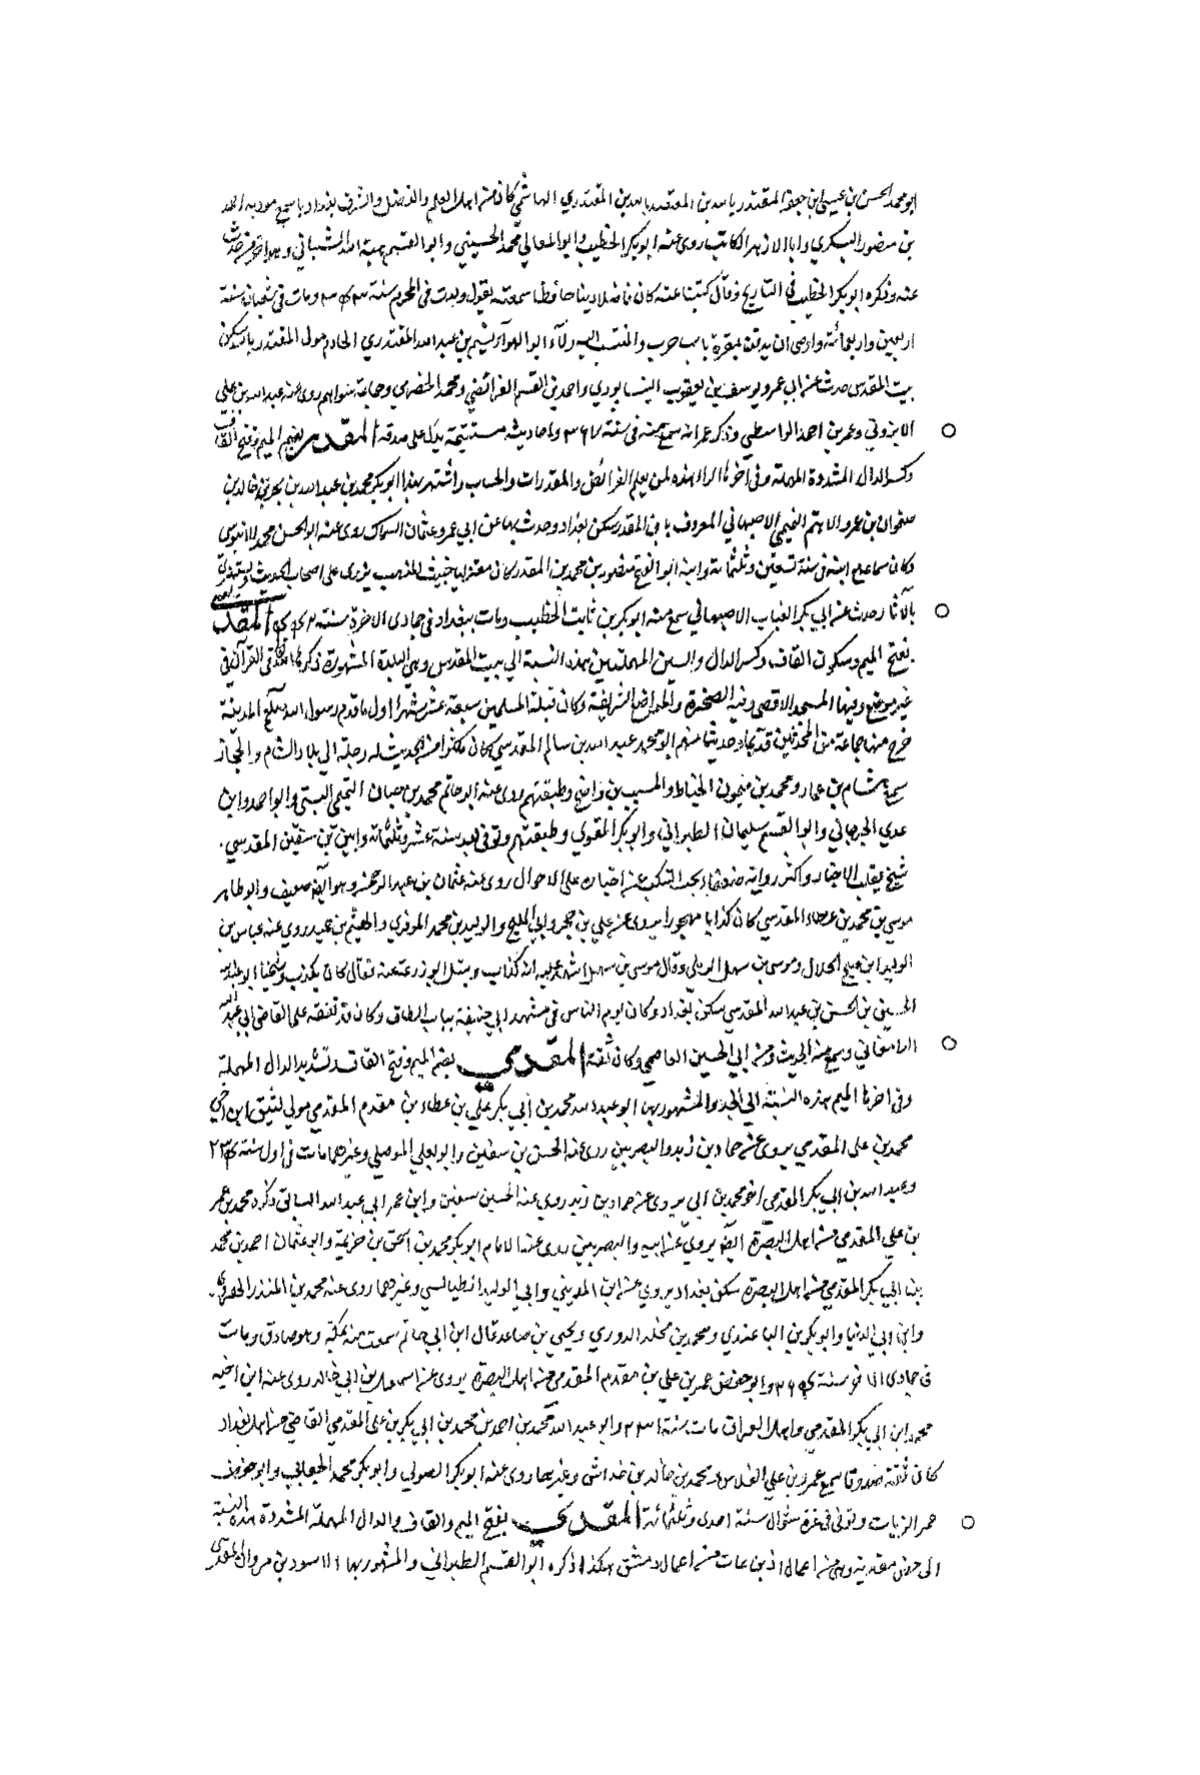 ابو محمد الحسن بن عيسى ابن جعفر المقتدر بالله بن المعتضد بالله بن المقتدري الهاشمي كان من اهل العلم والفضل والشرف بغداديا سمع مودبه احمد
بن منصور اليشكري وابا الازهر الكاتب روى عنه ابو بكر الخطيب وابو المعالي محمد الحسيني وابو القسم هبة الله الشيباني وهو اخر من حدث
عنه وذكره ابو بكر الخطيب في التاريخ وقال كتبنا عنه كان فاضلا دينا حافظا سمعته يقول ولدت في المحرم سنة ٣٤٣ ومات في شعبان سنة
اربعين واربعمائة واوصى ان يدفن بمقبرة باب حرب والمنتسب اليه ولاء ابو الهواء نسيم بن عبد الله المقتدري الخادم مولى المقتدر بالله سكن
بيت المقدس حدث عن ابي عمرو يوسف بن يعقوب النيسابوري واحمد بن القسم الفرائضي ومحمد الحضرمي وجماعة سواهم روى عنه عبد الله بن علي
الابزوني وعمر بن احمد الواسطي وذكر عمر انه سمع منه في سنة ٣٦٧ واحاديثه مستقيمة يدل على صدقه المقدر بضم الميم وفتح القاف
وكسر الدال المشددة المهملة وفي اخرها الراء هذه لمن يعلم الفرائض والمقدرات والحساب واشتهر بهذا ابو بكر محمد بن عبد الله بن خالد بن
صفوان بن عمرو الاهتم التميمي الاصبهاني المعروف بابن المقدر سكن بغداد وحدث بها عن ابي عمرو عثمان السماك روى عنه ابو الحسن محمد الابنوسي
وكان سماع ابنه في سنة تسعين وثلثمائة وابنه ابو الفتح منصور بن محمد بن المقدر كان معتزليا خبيث المذهب يزري على اصحاب الحديث ويستهزئ
بالآثار حدث عن ابي بكر القباب الاصبهاني سمع منه ابو بكر بن ثابت الخطيب ومات ببغداد في جمادى الاخرة سنة المقدسي
بفتح الميم وسكون القاف وكسر الدال والسين المهملتين هذه النسبة الى بيت المقدس وهي البلدة المشهورة ذكرها الله تعالى في القرآن في
غير موضع وفيها المسجد الاقصى وفيه الصخرة والمواضع الشريفة وكان قبلة المسلمين سبعة عشر شهرا اول ما قدم رسول الله صلعم المدينة
خرج منها جماعة من المحدثين قديما وحديثا منهم ابو محمد عبد الله بن سالم المقدسي كان مكثرا من الحديث له رحلة الى بلاد الشام والحجاز
سمع هشام بن عمار ومحمد بن ميمون الخياط والمسيب بن واضح وطبقتهم روى عنه ابو حاتم محمد بن حبان التميمي البستي وابو احمد وابن
عدي الجرجاني وابو القسم سليمان الطبراني وابو بكر المقري وطبقتهم وتوفي بعد سنة عشر وثلثمائة وابين بن سفين المقدسي
شيخ يقلب الاخبار واكثر رواته ضعفاء يجب التنكب عن اخباره على الاحوال روى عنه عثمان بن عبد الرحمن وهو ايضا ضعيف وابو طاهر
موسى بن محمد بن عطاء المقدسي كان كذابا مهجورا يروى عن علي بن حجر وابي المليح والوليد بن محمد الموقري والهيثم بن حميد روى عنه عباس بن
الوليد ابن صبيح الخلال وموسى بن سهل الرملي وقال موسى بن سهل اشهد عليه انه كذاب وسئل ابو زرعة عنه فقال كان يكذب وشيخنا ابو عبد الله
الحسين بن الحسن بن عبد الله المقدسي سكن بغداد وكان يوم الناس في مشهد ابي حنيفة بباب الطاق وكان قد تفقه على القاضي ابي عبد الله
الدامغاني وسمع منه الحديث ومن ابي الحسين العاصمي وكان ثقة المقدمي بضم الميم وفتح القاف وتشديد الدال المهملة
وفي اخرها الميم هذه النسبة الى الجد والمشهور بها ابو عبد الله محمد بن ابي بكر علي بن عطاء بن مقدم المقدمي مولى ثقيف ابن اخي
محمد بن علي المقدمي يروى عن حماد بن زيد والبصريين روى عنه الحسن بن سفين وابو يعلى الموصلي وغيرهما مات في اول سنة ٢٣٤
وعبد الله بن ابي بكر المقدمي اخو محمد بن ابي يروى عن حماد بن زيد روى عنه الحسن سفين وابن عمر ابي عبد الله السابق ذكره محمد بن عمر
بن علي المقدمي من اهل البصرة ايضا يروى عن ابيه والبصريين روى عنه الامام ابو بكر محمد بن اسحق بن خزيمة وابو عثمان احمد بن محمد
بن ابي بكر المقدمي من اهل البصرة سكن بغداد يروى عن ابن المديني وابي الوليد الطيالسي وغيرهما روى عنه محمد بن المنذر الهروي
وابن ابي الدنيا وابو بكر بن الباغندي ومحمد بن مخلد الدوري ويحيى بن صاعد قال ابن ابي حاتم سمعت منه بمكة وهو صادق ومات
في جمادى الاخر سنة ٢٦٤ وابو حفص عمر بن علي بن مقدم المقدمي من اهل البصرة يروى عن اسمعيل بن ابي خالد روى عنه ابن اخيه
محمد ابن ابي بكر المقدمي واهل العراق مات سنة وابو عبد الله محمد بن احمد بن محمد بن ابي بكر بن علي المقدمي القاضي من اهل بغداد
كان ثقة صدوقا سمع عمرو بن علي الفلاس ومحمد بن خالد بن خداش وغيرهما روى عنه ابو بكر الصولي وابو بكر محمد الجعابي وابو حفص
عمر الزيات وتوفي في غرة شوال سنة احدى وثلثمائة المقدي بفتح الميم والقاف والدال المهملة المشددة هذه النسبة
الى حصن مقدية وهي من اعمال اذرعات من اعمال دمشق هكذا ذكره ابو القسم الطبراني والمشهور بها الاسود بن مروان المقدي